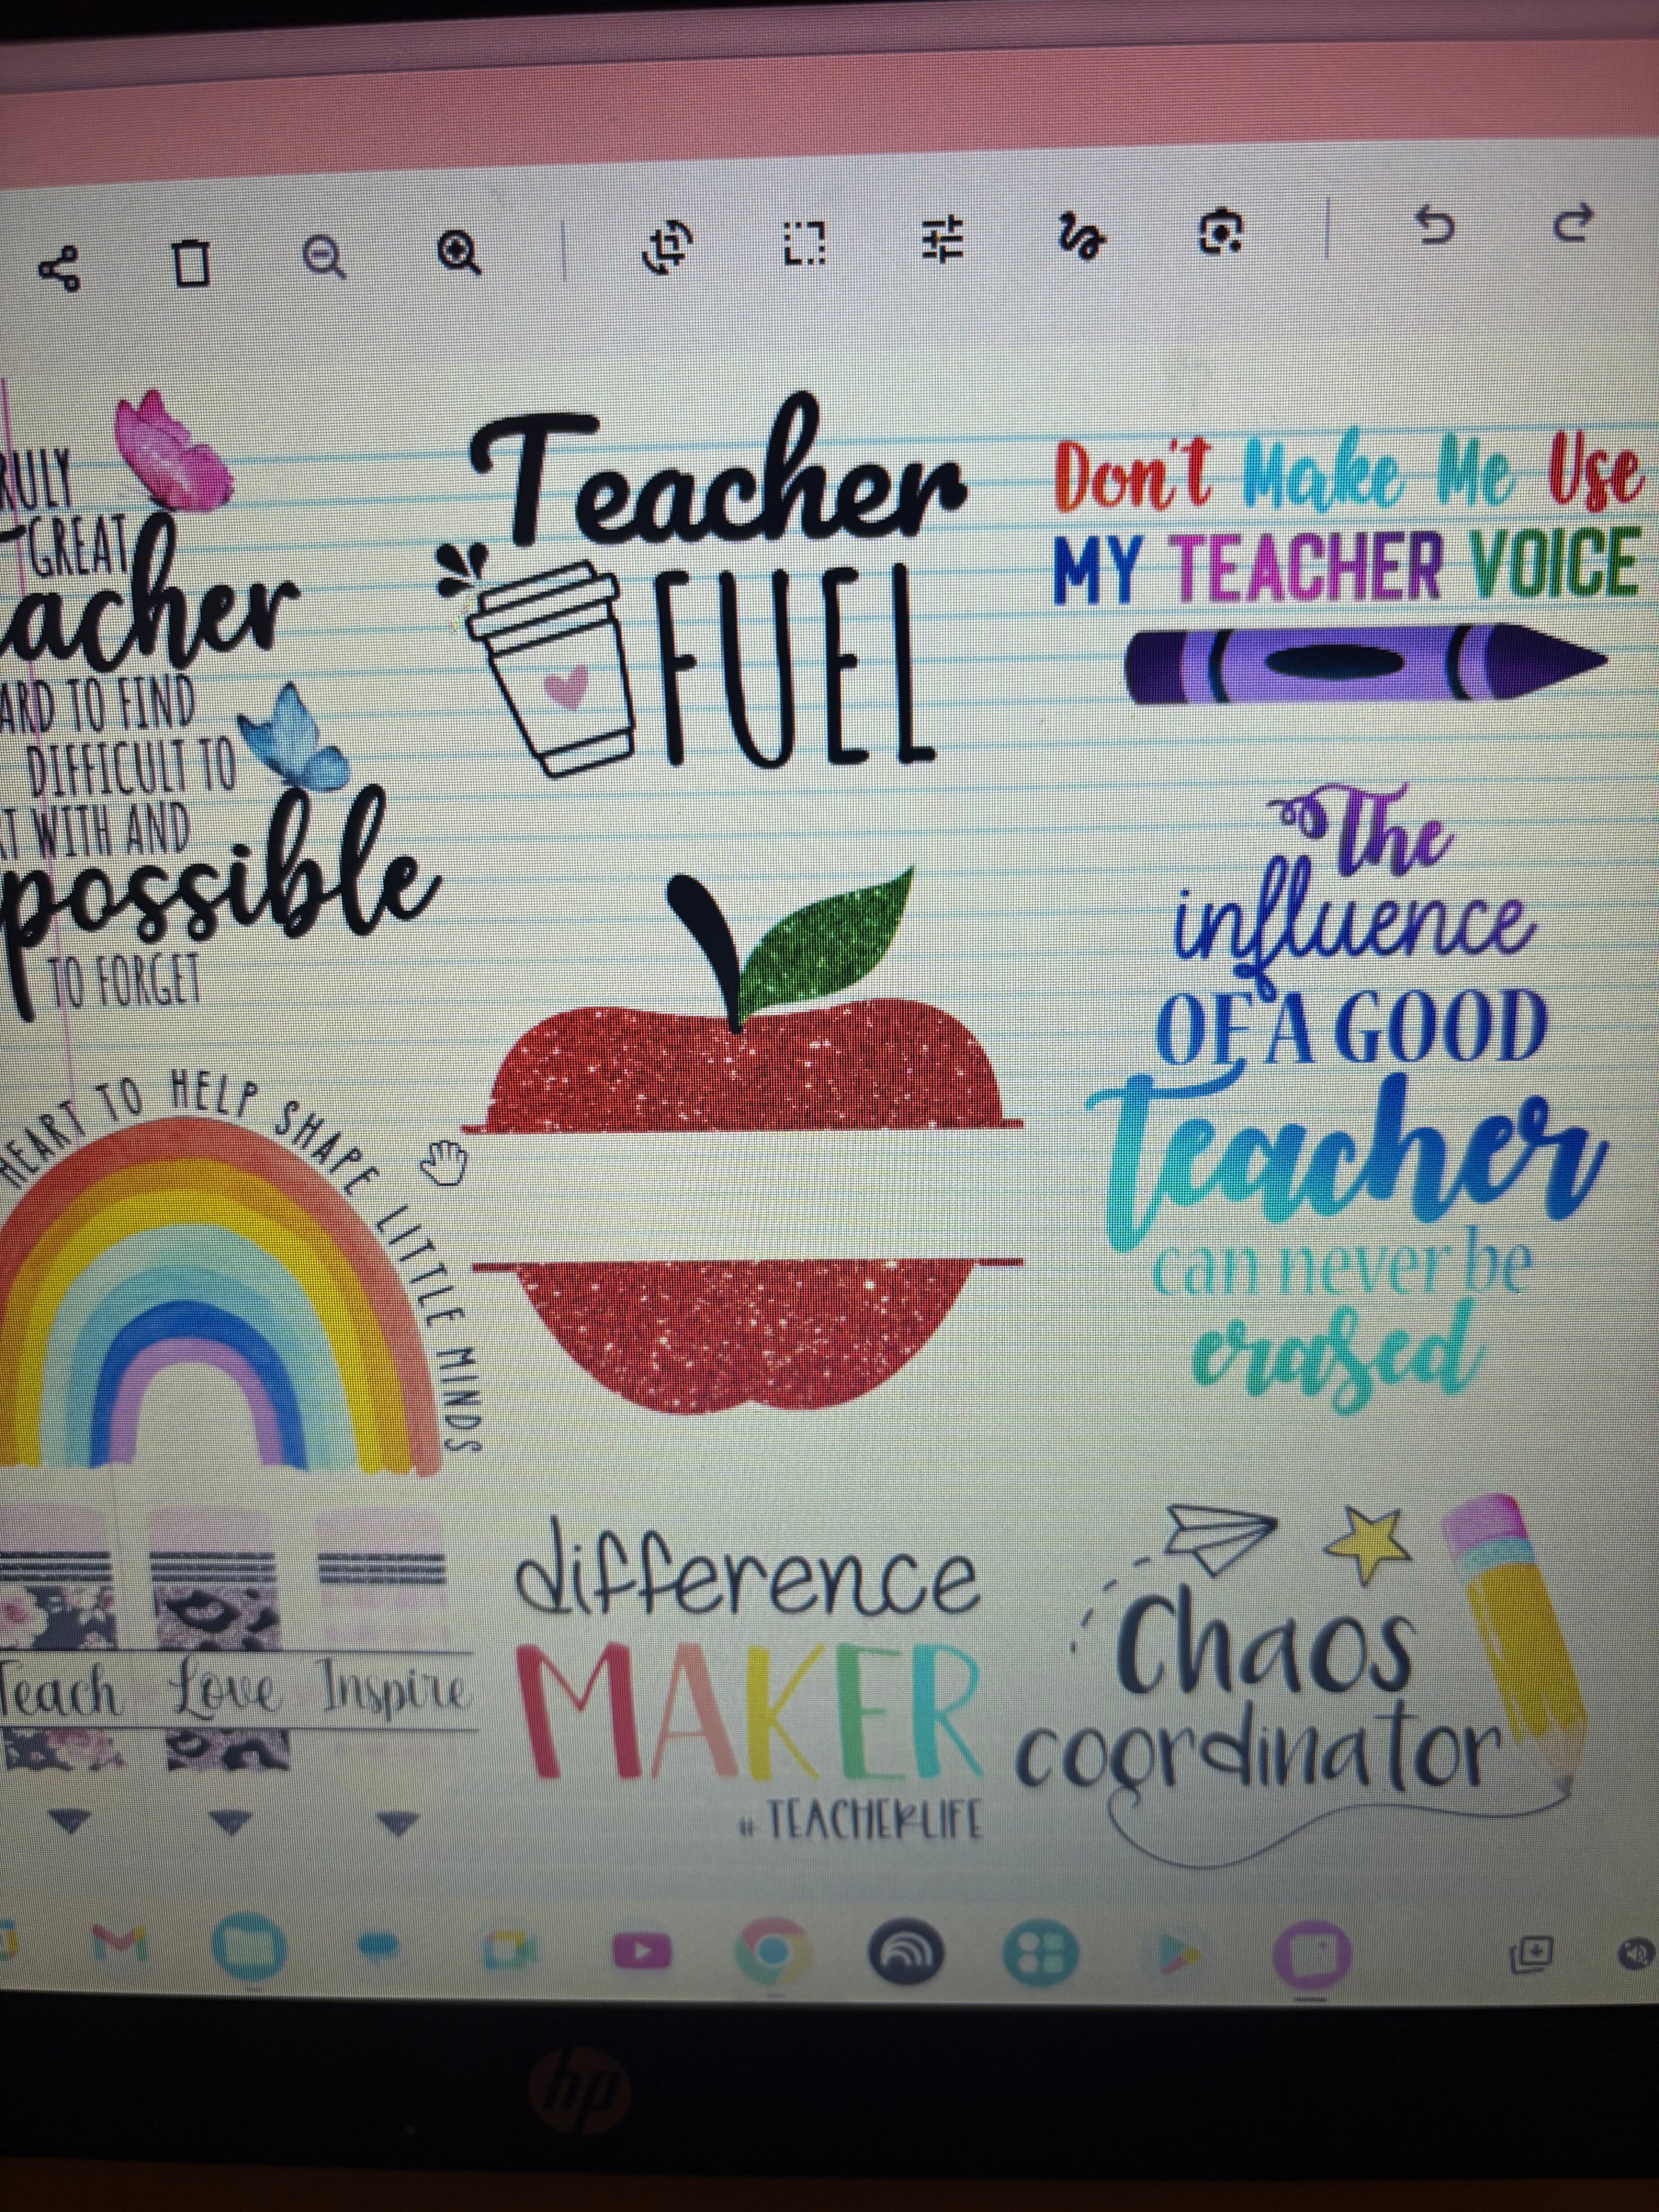 RULY
GREAT
acher
ARD TO FIND
DIFFICULT TO
T WITH AND
possible
TO FORGET
Teacher
FUEL
Don't Make Me Use
MY TEACHER VOICE
The
influence
OF A GOOD
Teacher
can never be
erased
HEART TO HELP SHAPE LITTLE MINDS
Teach Love Inspire
difference
MAKER
# TEACHERLIFE
Chaos
coordinator
hp